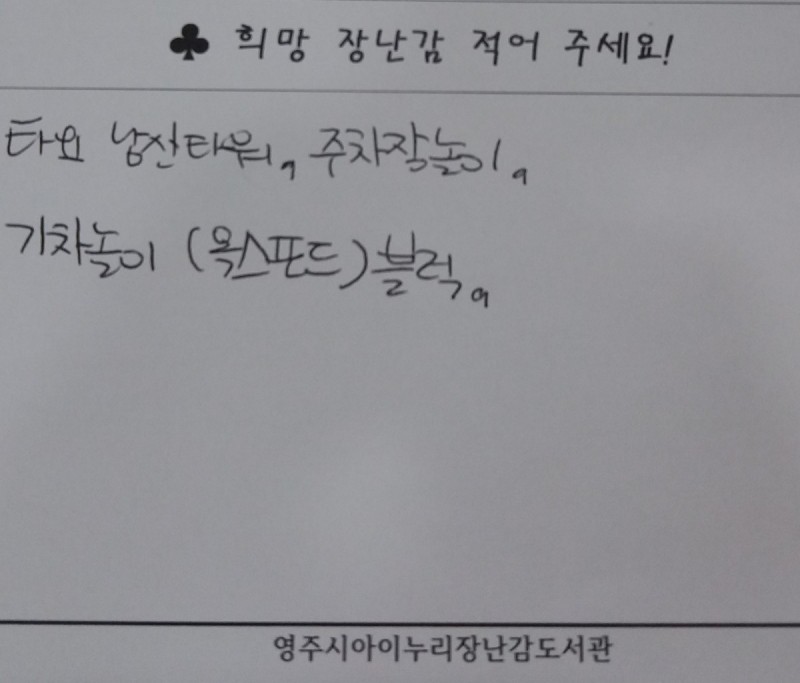 ♣ 희망 장난감 적어 주세요!
타요 남산타워, 주차장놀이,
기차놀이 (옥스포드)블럭,
영주시아이누리장난감도서관